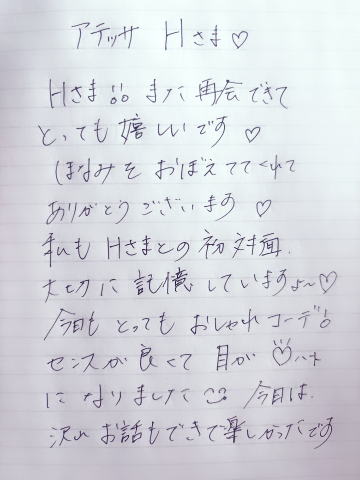 アテッサ Hさま♡
Hさま!! また 再会できて
とっても 嬉しいです♡
ほなみを おぼえててくれて
ありがとう ございます♡
私も Hさまとの 初対面、
大切に 記憶していますよ〜♡
今日も とっても おしゃれコーデ!!
センスが 良くて 目が ♡ハート
に なりました 今日は、
沢山 お話もできて楽しかったです